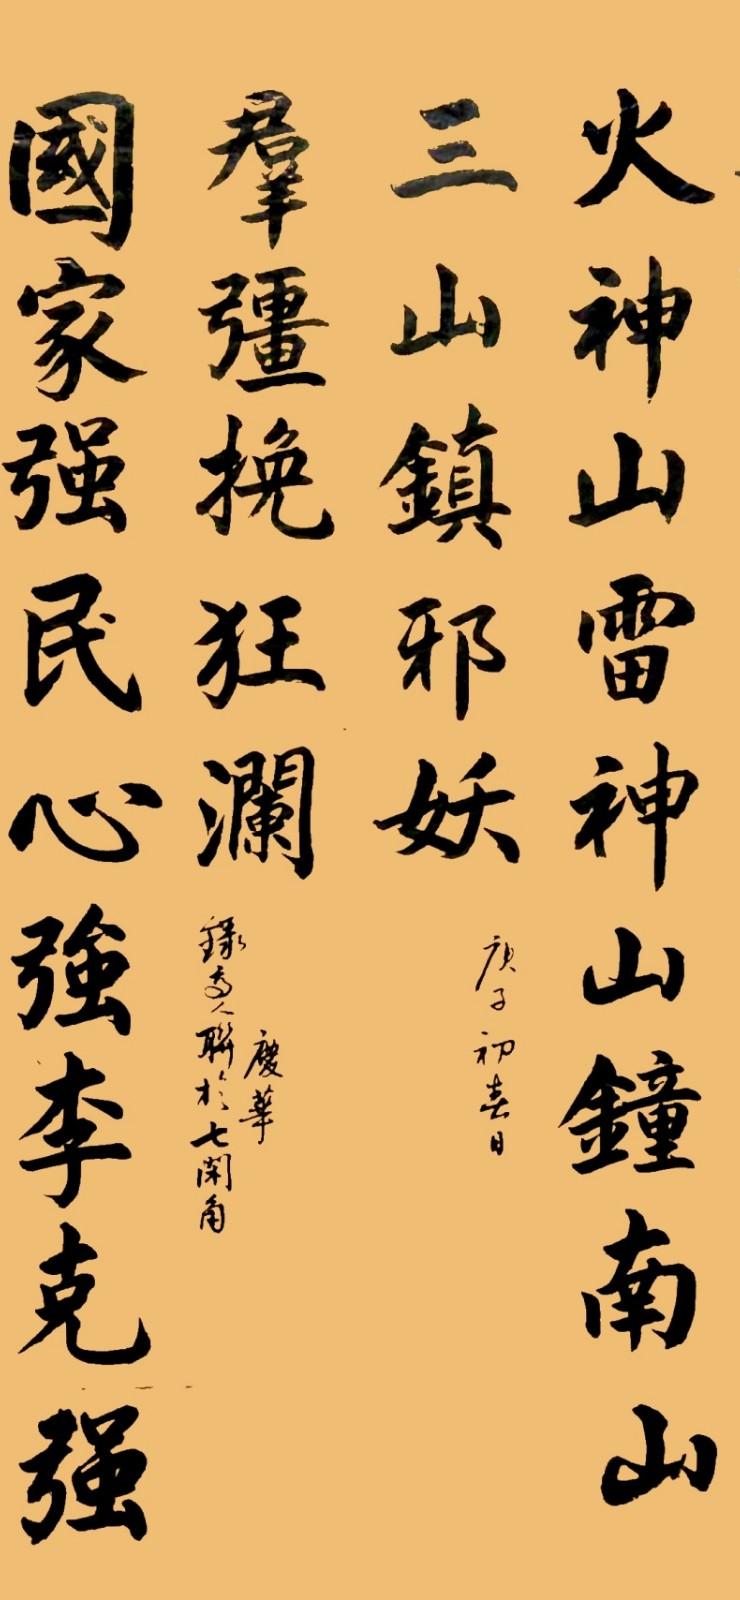 火神山雷神山鐘南山
三山鎮邪妖
庚子初春日
羣彊挽狂瀾
慶華
錄高人聯於七閑角
國家强民心強李克强